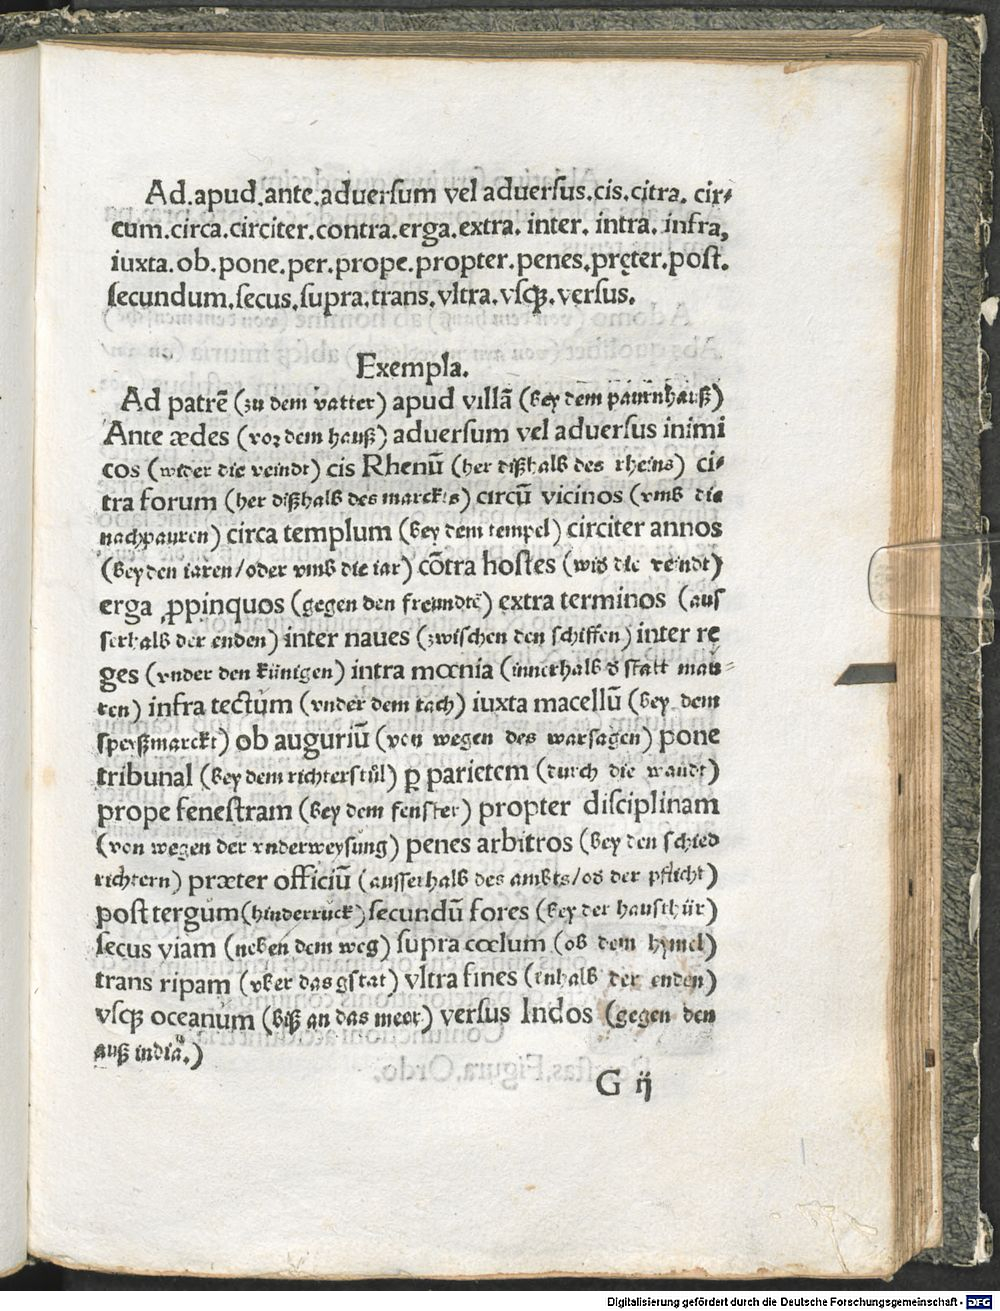 Ad.apud.ante.aduerſum vel aduerſus.cis.citra. cir⸗
cum.circa.circiter.contra.erga.extra. inter. intra. infra,
iuxta.ob.pone.per.prope.propter.penes.pręter.poſt.
ſecundum.ſecus.ſupra.trans.vltra.vſqꝫ.verſus.
Exempla.
Ad patrē (zu dem vatter) apud villā (bey dem paurnhauß)
Ante ædes (voꝛ dem hauß) aduerſum vel aduerſus inimi
cos (wider die veindt) cis Rhenū (her dißhalb des rheins) ci⸗
tra forum (her dißhalb des marckts) circū vicinos (vmb die
nachpauren) circa templum (bey dem tempel) circiter annos
(bey den iaren/oder vmb die iar) cōtra hoſtes (wid die veindt)
erga ꝓpinquos (gegen den freundtē) extra terminos (auſ
ſerhalb der enden) inter naues (zwiſchen den ſchiffen) inter re
ges (vnder den künigen) intra mœnia (innerhalb d ſtatt mau⸗
ren) infra tectum (vnder dem tach) iuxta macellū (bey dem
ſpeyßmarckt) ob auguriū (von wegen des warſagen) pone
tribunal (bey dem richterſtůl) ꝑ parietem (durch die wandt)
prope feneſtram (bey dem fenſter) propter diſciplinam
(von wegen der vnderweyſung) penes arbitros (bey den ſchied
richtern) præter officiū (auſſerhalb des ambts/od der pflicht)
poſt tergum (hinderruck) ſecundū fores (bey der hauſthür)
ſecus viam (neben dem weg) ſupra cœlum (ob dem hymel)
trans ripam (vber das gſtat) vltra fines (enhalb der enden)
vſqꝫ oceanum (biß an das meer) verſus Indos (gegen den
auß indiā.)
G ij
Digitalisierung gefördert durch die Deutsche Forschungsgemeinschaft - DFG